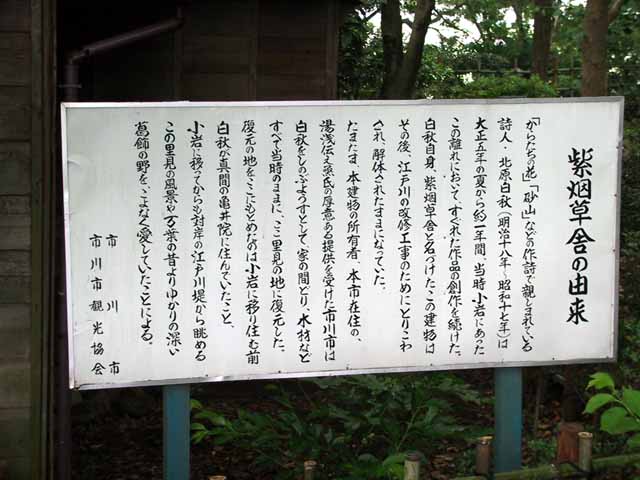 紫烟草舎の由来
「からたちの花」「砂山」などの作詩で親しまれている
詩人・北原白秋（明治十八年～昭和十七年）は
大正五年の夏から約一年間、当時小岩にあった
この離れにおいて、すぐれた作品の創作を続けた。
白秋自身、紫烟草舎と名づけたこの建物は
その後、江戸川の改修工事のためにとりこわ
され、解体されたままになっていた。
たまたま、本建物の所有者、本市在住の、
湯浅伝之焏氏の厚意ある提供を受けた市川市は
白秋をしのぶよすがとして、家の間どり、木材など
すべて当時のままに、ここ里見の地に復元した。
復元の地をここにもとめたのは小岩に移り住む前
白秋が真間の亀井院に住んでいたこと、
小岩に移ってからも対岸の江戸川堤から眺める
この里見の風景や万葉の昔よりゆかりの深い
葛飾の野を、こよなく愛していたことによる。
市川市
市川市観光協会